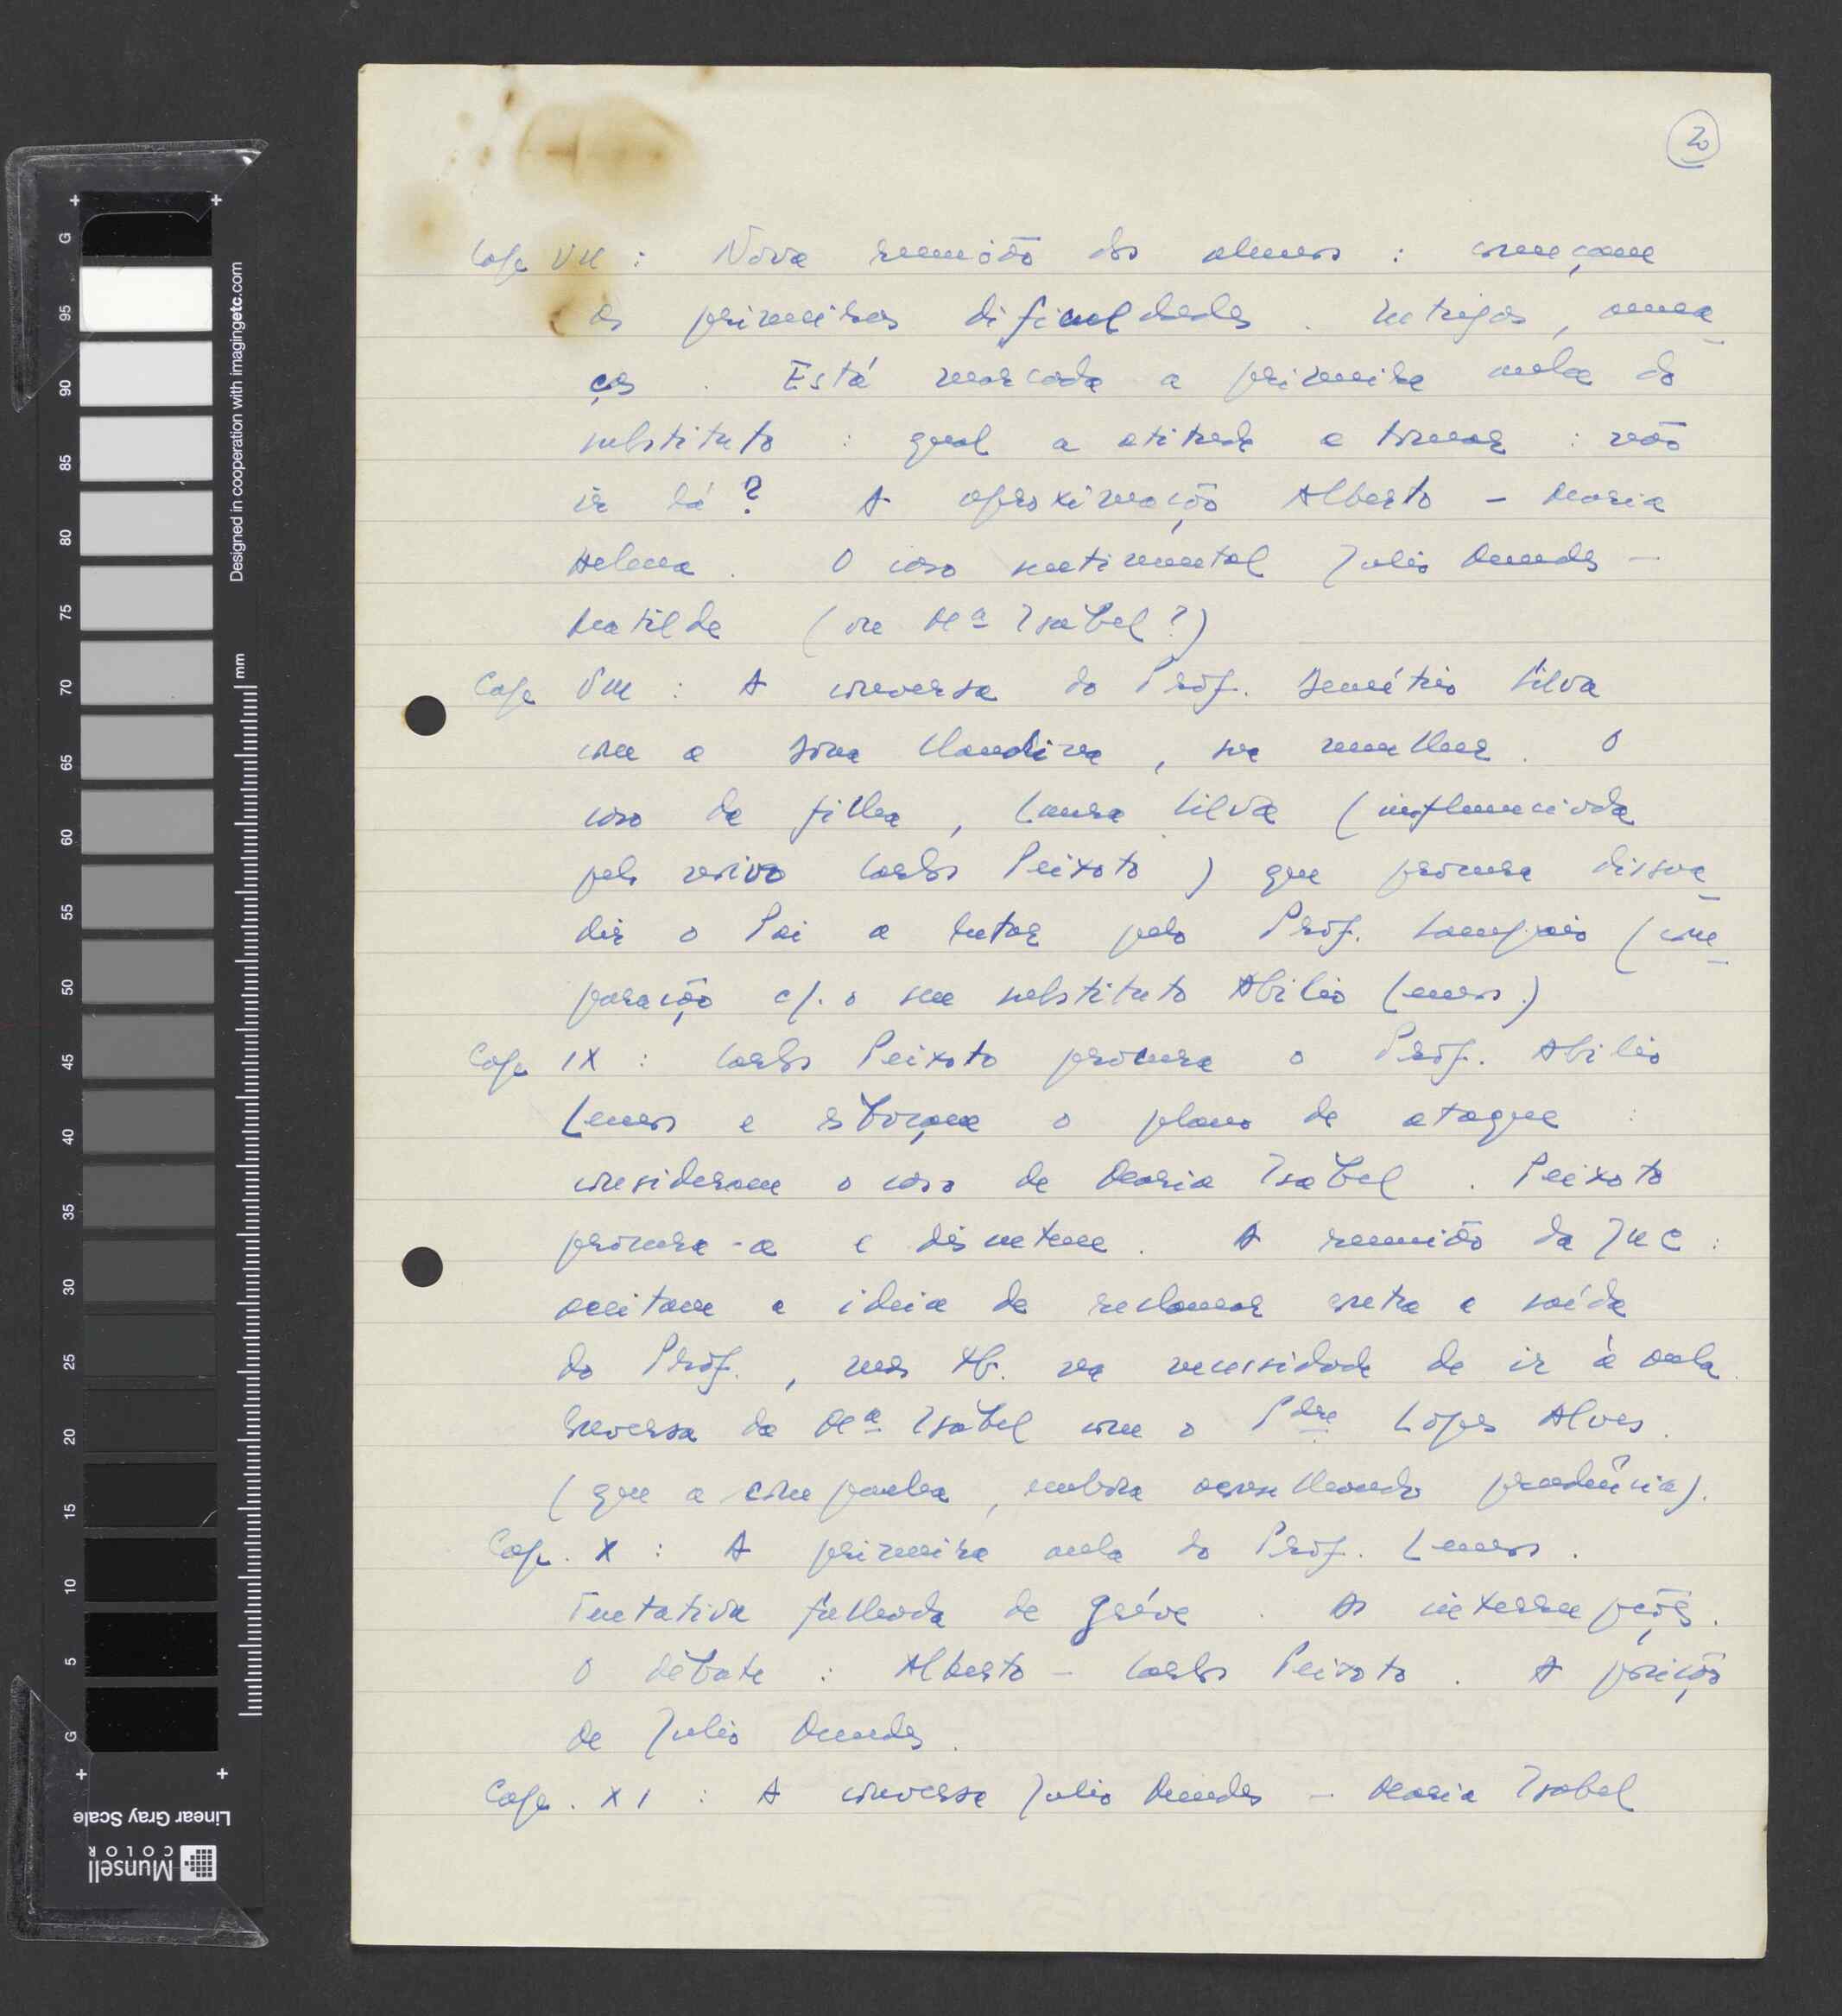 20
Cap VII : Nova reunião dos alunos : começam
as primeiras dificuldades . Intrigas , amea-
ças . Está marcada a primeira aula do
substituto : qual a atitude a tomar : não
ir lá ? A aproximação Alberto - Maria
Helena . O caso sentimental Julio Mendes -
Matilde ( ou Mª Isabel ? )
Cap VIII : A conversa do Prof. Demétrio Silva
com a Dona Claudina , sua mulher . O
caso da filha , Laura Silva ( influenciada
pelo noivo Carlos Peixoto ) que procura dissua-
dir o Pai a lutar pelo Prof. Sampaio ( com-
paração c/. o seu substituto Abilio Lemos . )
Cap IX : Carlos Peixoto procura o Prof. Abilio
Lemos e esboçam o plano de ataque :
consideram o caso de Maria Isabel . Peixoto
procura-a e discutem . A reunião da JUC :
aceitam a ideia de reclamar contra a saída
do Prof. , mas tb. na necessidade de ir à aula .
Conversa da Mª Isabel com o Pdre Lopes Alves .
( que a compreende , embora aconselhando prudência ) .
Cap . X : A primeira aula do Prof. Lemos .
Tentativa falhada de gréve . As interrupções .
O debate : Alberto - Carlos Peixoto . A posição
de Julio Mendes .
Cap . XI : A conversa Julio Mendes - Maria Isabel
Designed in cooperation with imagingetc.com
mm
G 95 90 85 80 75 70 65 60 55 50 45 40 35 30 25 20 15 10 5 G
Linear Gray Scale
Munsell
COLOR